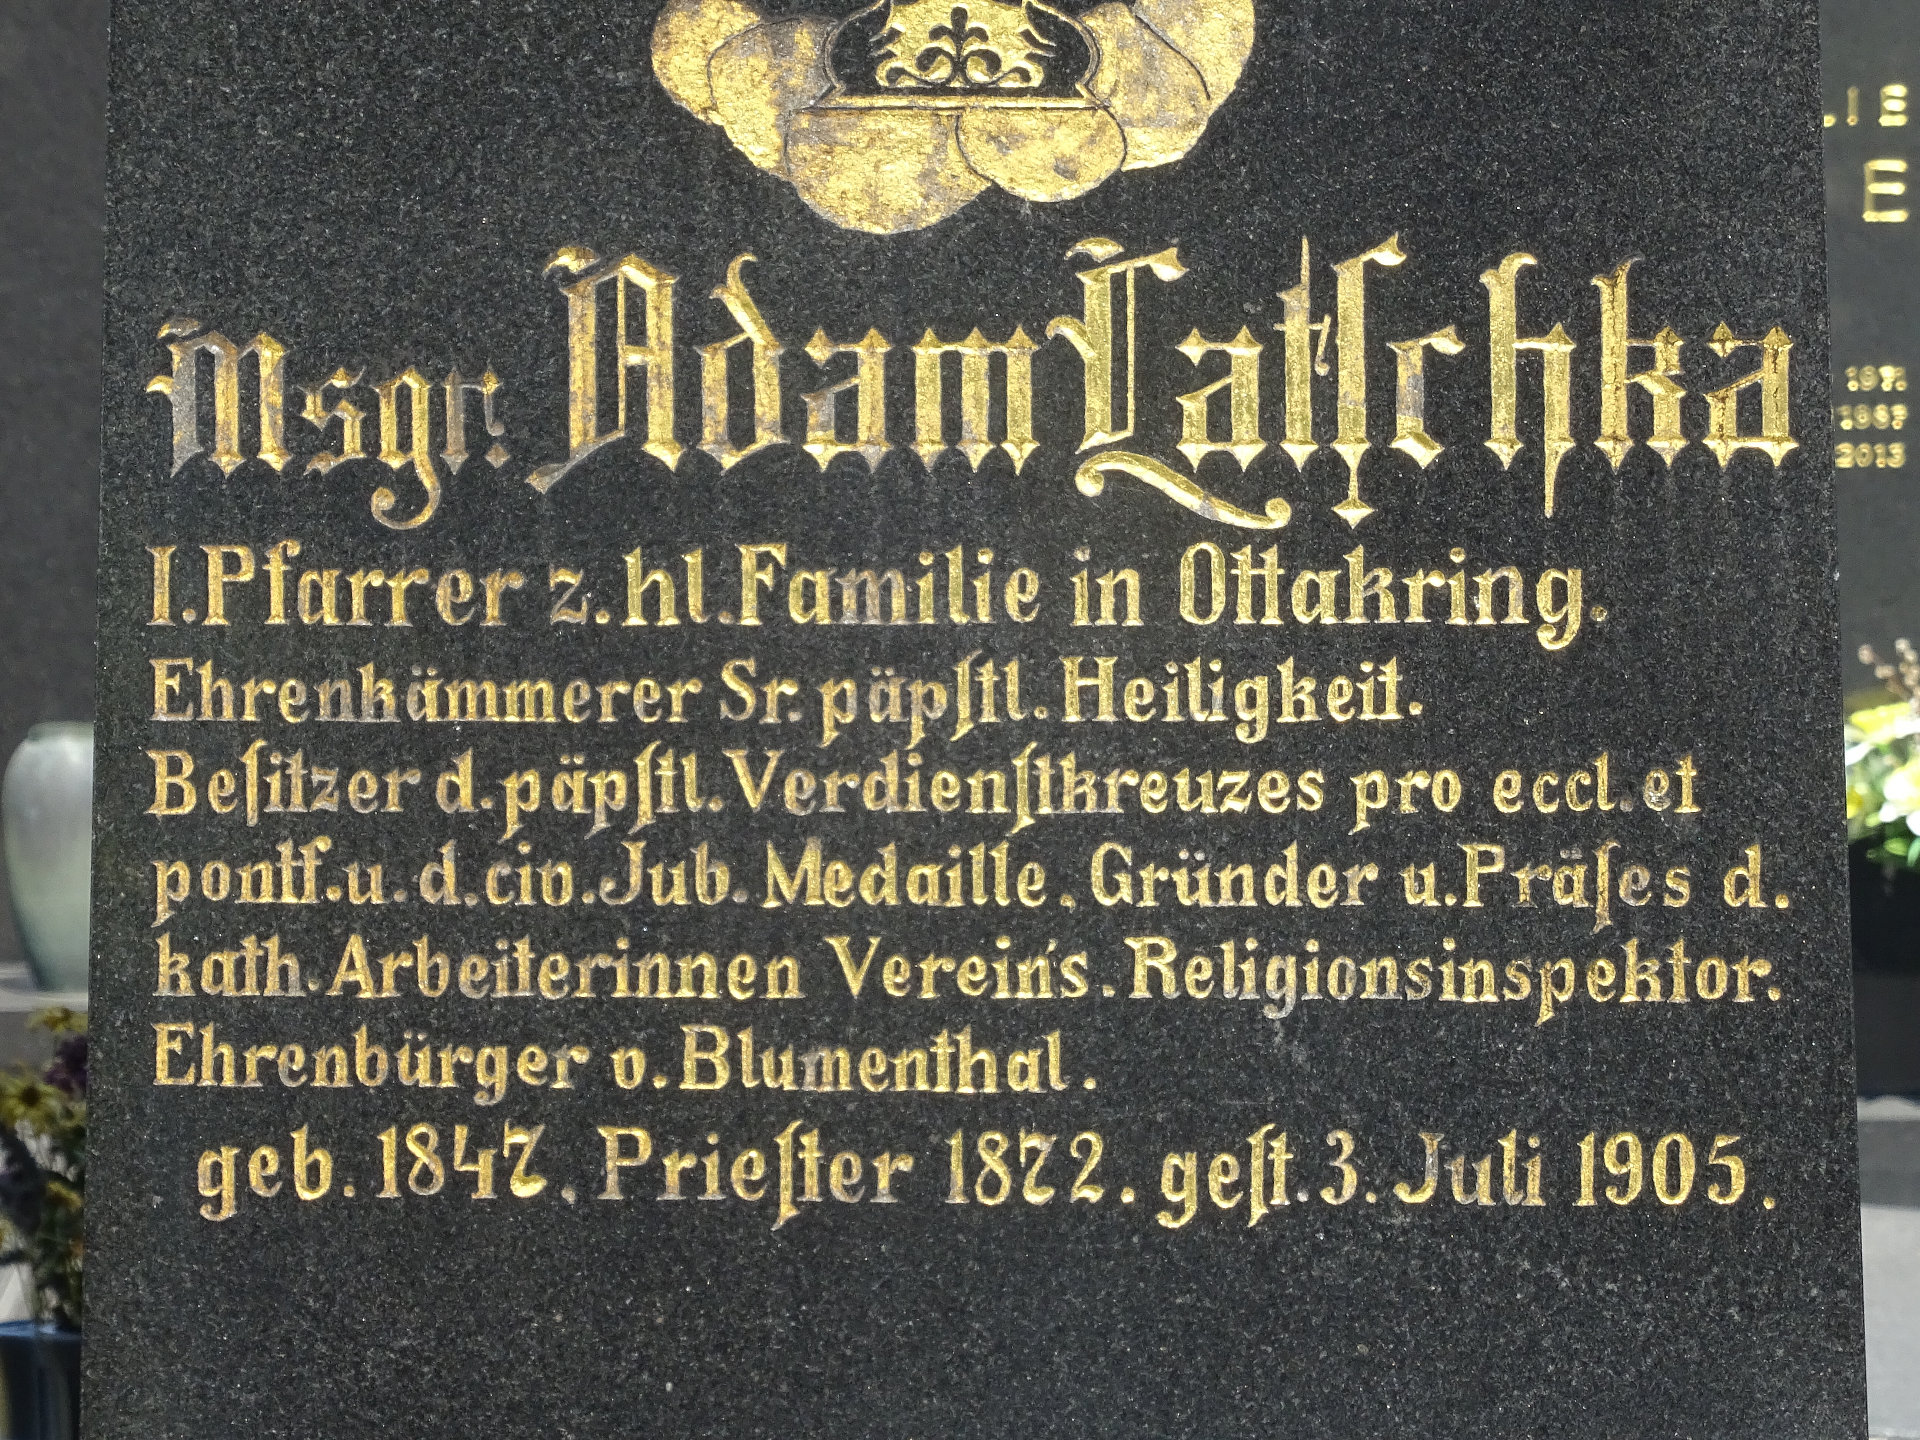 Msgr. Adam Latſchka
I. Pfarrer z. hl. Familie in Ottakring.
Ehrenkämmerer Sr. päpſtl. Heiligkeit.
Beſitzer d. päpſtl. Verdienſtkreuzes pro eccl. et
pontf. u. d. civ. Jub. Medaille. Gründer u. Präſes d.
kath. Arbeiterinnen Verein's. Religionsinspektor.
Ehrenbürger v. Blumenthal.
geb. 1847. Prieſter 1872. geſt. 3. Juli 1905.
LIE
E
2013